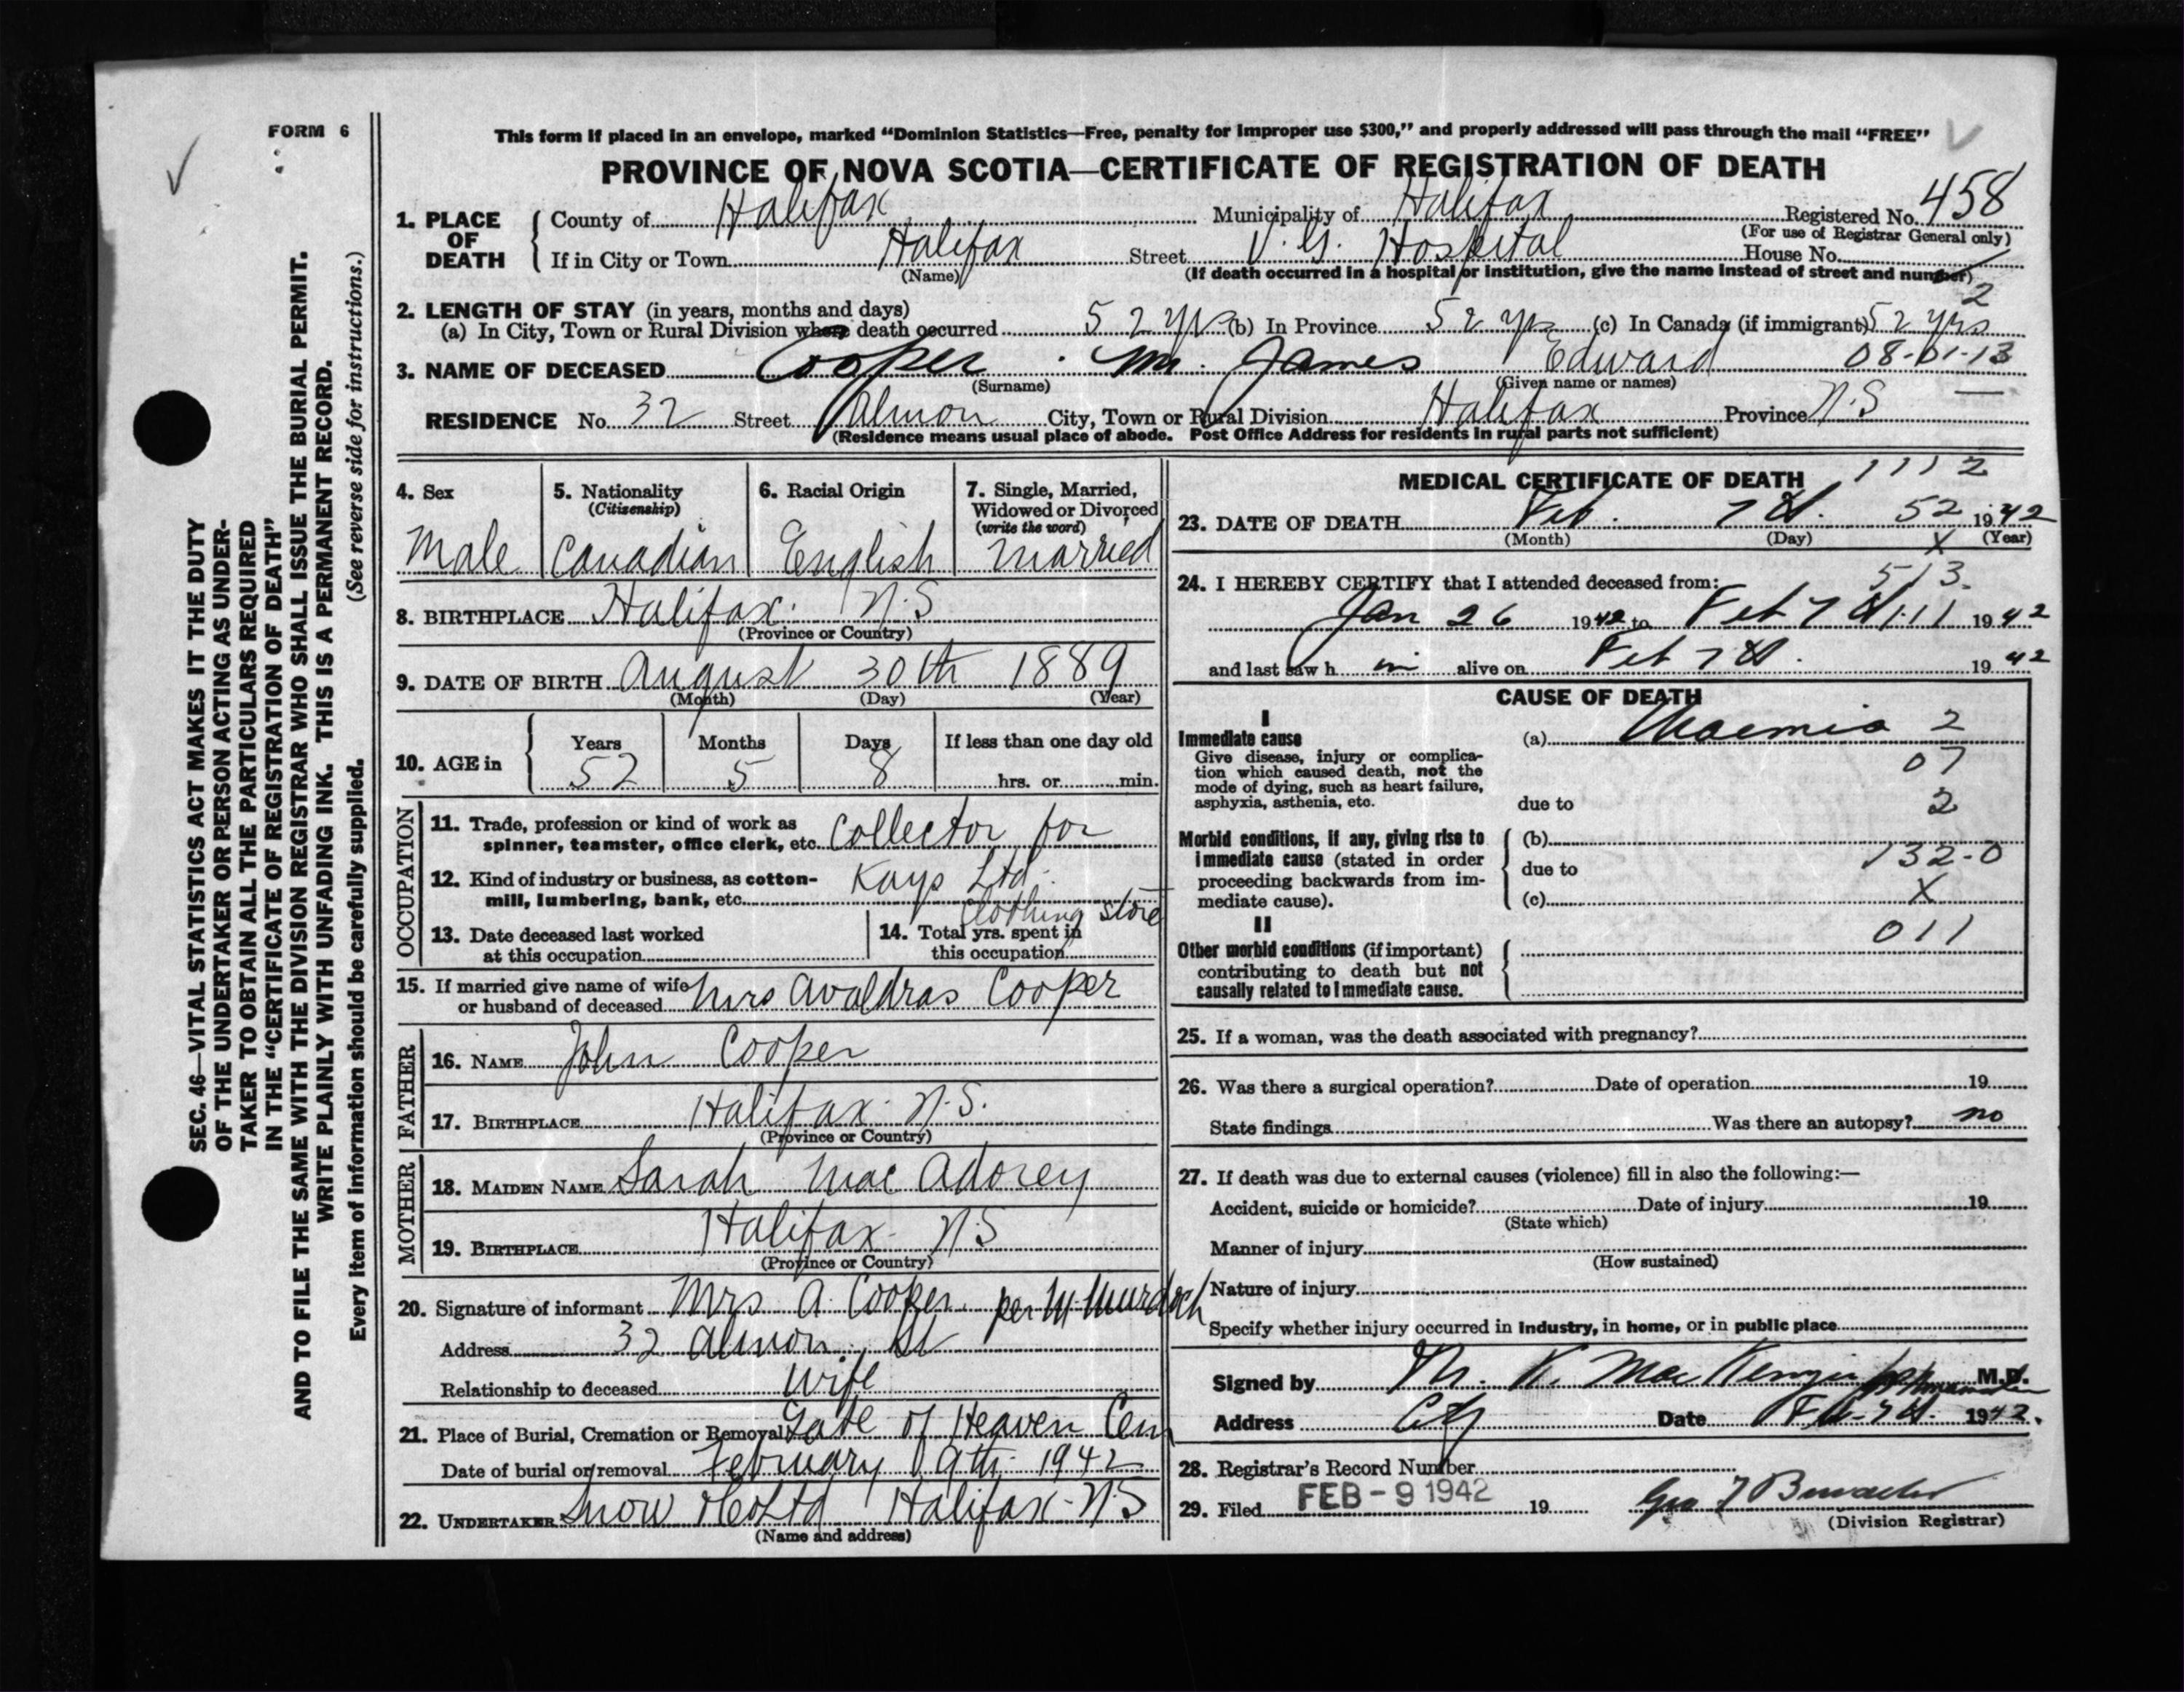 FORM 6
This form if placed in an envelope, marked “Dominion Statistics—Free, penalty for improper use $300,” and properly addressed will pass through the mail “FREE”
PROVINCE OF NOVA SCOTIA—CERTIFICATE OF REGISTRATION OF DEATH
1. PLACE OF DEATH
County of Halifax Municipality of Halifax Registered No. 458
(For use of Registrar General only)
If in City or Town Halifax Street V. G. Hospital House No.
(Name) (If death occurred in a hospital or institution, give the name instead of street and number)
2
2. LENGTH OF STAY (in years, months and days)
(a) In City, Town or Rural Division where death occurred 52 yrs (b) In Province 52 yrs (c) In Canada (if immigrant) 52 yrs
3. NAME OF DECEASED Cooper Mr. James Edward 08-01-13
(Surname) (Given name or names)
RESIDENCE No. 32 Street Almon City, Town or Rural Division Halifax Province N.S
(Residence means usual place of abode. Post Office Address for residents in rural parts not sufficient)
4. Sex
Male
5. Nationality
(Citizenship)
Canadian
6. Racial Origin
English
7. Single, Married,
Widowed or Divorced
(write the word)
Married
8. BIRTHPLACE Halifax. N.S
(Province or Country)
9. DATE OF BIRTH August 30th 1889
(Month) (Day) (Year)
10. AGE in
Years Months Days If less than one day old
52 5 8 hrs. or min.
OCCUPATION
11. Trade, profession or kind of work as
spinner, teamster, office clerk, etc. Collector for
12. Kind of industry or business, as cotton-
mill, lumbering, bank, etc. Kays Ltd.
Clothing store
13. Date deceased last worked
at this occupation
14. Total yrs. spent in
this occupation
15. If married give name of wife
or husband of deceased Mrs Avaldras Cooper
FATHER
16. NAME John Cooper
17. BIRTHPLACE Halifax. N.S.
(Province or Country)
MOTHER
18. MAIDEN NAME Sarah Mac Adorey
19. BIRTHPLACE Halifax. N.S
(Province or Country)
20. Signature of informant Mrs A. Cooper. per M Murdoch
Address 32 Almon St
Relationship to deceased Wife
21. Place of Burial, Cremation or Removal Gate of Heaven Cem
Date of burial or removal February 9th. 1942
22. UNDERTAKER Snow & Co Ltd Halifax. N.S
(Name and address)
MEDICAL CERTIFICATE OF DEATH 1112
23. DATE OF DEATH Feb. 7th. 52 1942
(Month) (Day) X (Year)
24. I HEREBY CERTIFY that I attended deceased from: 513.
Jan 26 1942 to Feb 7th 111 1942
and last saw h im alive on Feb 7th. 1942
CAUSE OF DEATH
I
Immediate cause
Give disease, injury or complica-
tion which caused death, not the
mode of dying, such as heart failure,
asphyxia, asthenia, etc.
(a) Uraemia 2
07
due to 2
Morbid conditions, if any, giving rise to
immediate cause (stated in order
proceeding backwards from im-
mediate cause).
(b)
due to 132-0
(c) X
II
011
Other morbid conditions (if important)
contributing to death but not
causally related to immediate cause.
25. If a woman, was the death associated with pregnancy?
26. Was there a surgical operation? Date of operation 19
State findings Was there an autopsy? no
27. If death was due to external causes (violence) fill in also the following:—
Accident, suicide or homicide? Date of injury 19
(State which)
Manner of injury
(How sustained)
Nature of injury
Specify whether injury occurred in industry, in home, or in public place
Signed by K. MacKenzie M.D.
Address City Date Feb-7th. 1942.
28. Registrar's Record Number
29. Filed FEB - 9 1942 19 Geo
(Division Registrar)
SEC. 46—VITAL STATISTICS ACT MAKES IT THE DUTY
OF THE UNDERTAKER OR PERSON ACTING AS UNDER-
TAKER TO OBTAIN ALL THE PARTICULARS REQUIRED
IN THE “CERTIFICATE OF REGISTRATION OF DEATH”
AND TO FILE THE SAME WITH THE DIVISION REGISTRAR WHO SHALL ISSUE THE BURIAL PERMIT.
WRITE PLAINLY WITH UNFADING INK. THIS IS A PERMANENT RECORD.
Every item of information should be carefully supplied. (See reverse side for instructions.)